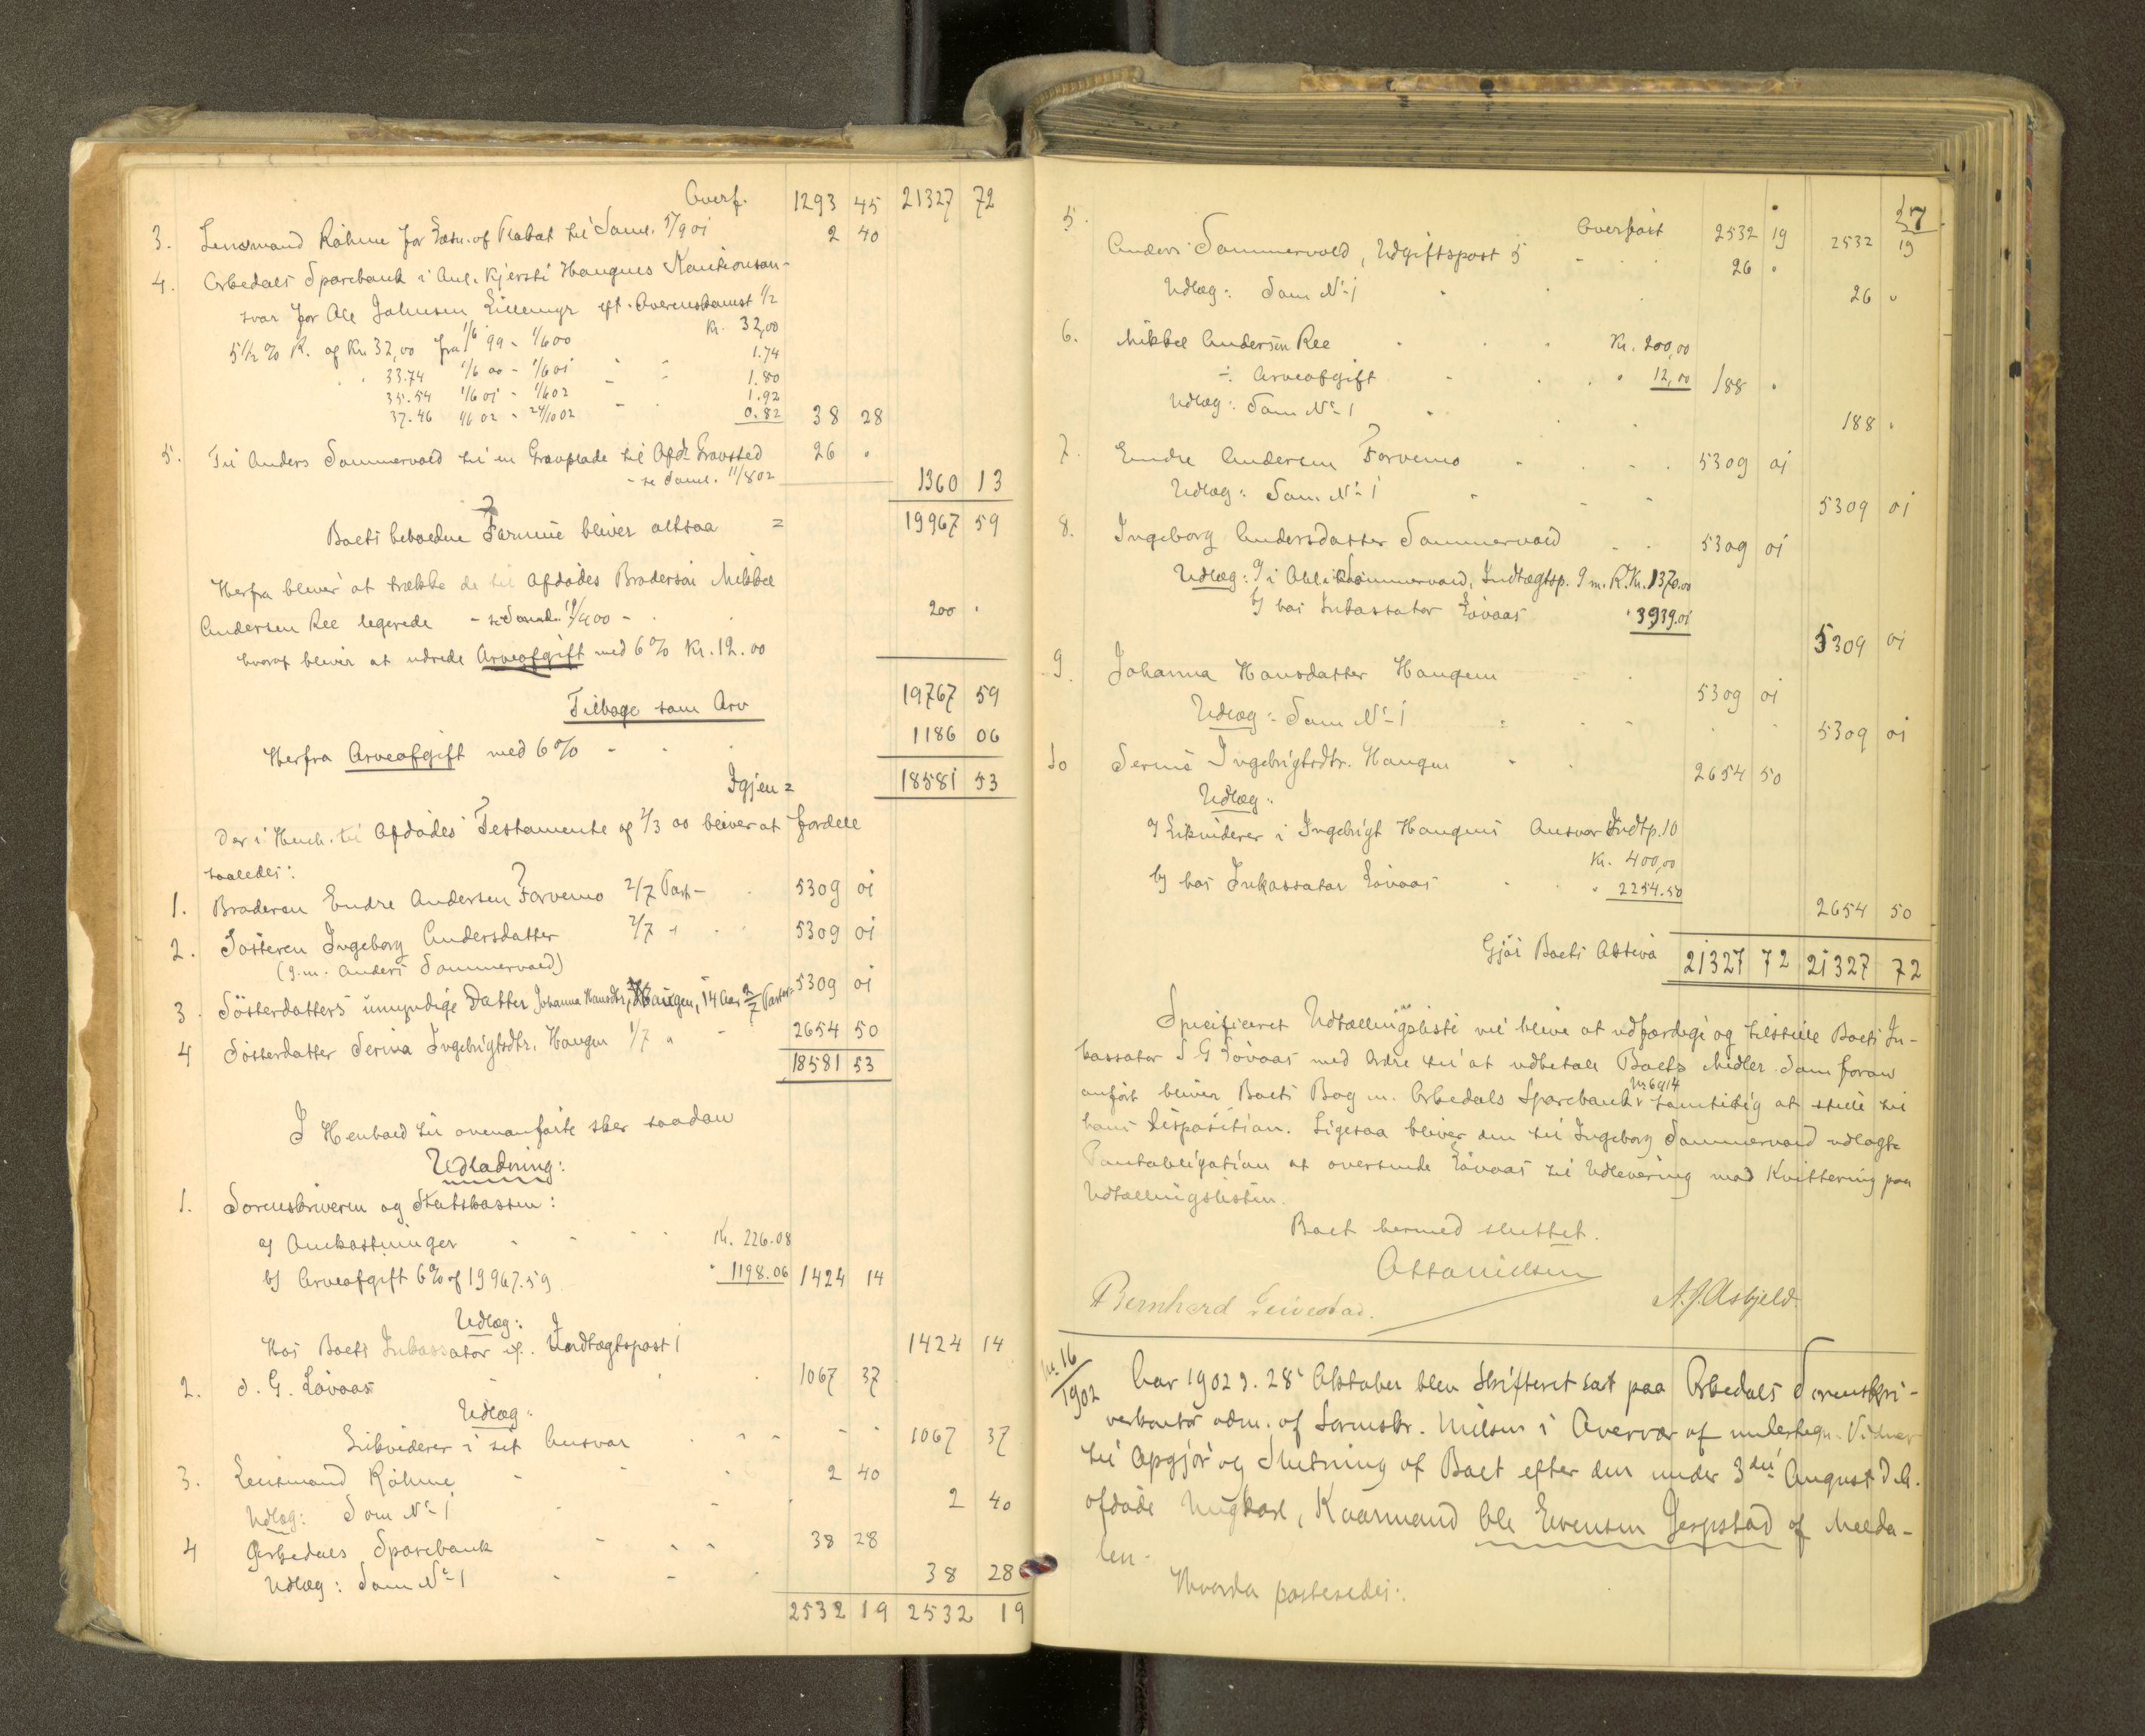 Overf. 1293 45 21327 72
3. Lensmand Röhme for Istn. of Plakat til Saml. 5/9 01 2 40
4. Orkedals Sparebank i Anl. Kjersti Haugens Kautionsan-
svar for Ole Johnsen Lillemyr eft. Overenskomst 1/2 Kr. 32,00
5 1/2 % R. af Kr. 32,00 fra 1/6 99 - 1/6 00 1.74
33.74 1/6 00 - 1/6 01 1.80
35.54 1/6 01 - 1/6 02 1.92
37.46 1/6 02 - 24/10 02 0.82 38 28
5. Til Anders Sommervold til en Gravplade til Afdr Gravsted 26 .
- se Saml. 11/8 02 1360 13
Boets beholdne Formue bliver altsaa = 19967 59
Herfra bliver at trække de til Afdødes Brodersøn Mikkel
Andersen Ree legerede - 200 .
hvoraf bliver at udrede Arveafgift med 6 % Kr. 12.00
Tilbage som Arv 19767 59
Herfra Arveafgift med 6 % - 1186 06
Igjen = 18581 53
Der i Henh. til Afdødes Testamente af 2/3 00 bliver at fordele
saaledes:
1. Broderen Endre Andersen Forvemo 2/7 Part - 5309 01
2. Søsteren Ingeborg Andersdatter 2/7 " 5309 01
(g. m. Anders Sommervold)
3. Søsterdatters umyndige Datter Johanna Hansdtr. Haugen, 14 Aar 2/7 Parter 5309 01
4 Søsterdatter Serina Ingebrigtsdtr. Haugen 1/7 " 2654 50
18581 53
I Henhold til ovenanførte sker saadan
Udlodning:
1. Sorenskriveren og Statskassen:
a) Omkostninger Kr. 226.08
b) Arveafgift 6 % af 19967.59 " 1198.06 1424 14
Udlæg:
Hos Boets Inkassator if. Indtægtspost 1 1424 14
2. S. G. Løvaas 1067 37
Udlæg:
Likviderer i sit Ansvar 1067 37
3. Lensmand Röhme 2 40
Udlæg: Som No 1 2 40
4 Orkedals Sparebank 38 28
Udlæg: Som No 1 38 28
2532 19 2532 19
27
Overført 2532 19 2532 19
5. Anders Sommervold, Udgiftspost 5 26 .
Udlæg: Som No 1 26 "
6. Mikkel Andersen Ree Kr. 200,00
÷ Arveafgift " 12,00 188 .
Udlæg: Som No 1 188 .
7. Endre Andersen Forvemo 5309 01
Udlæg: Som No 1 5309 01
8. Ingeborg Andersdatter Sommervold 5309 01
Udlæg: a) i Obl. i Sommervold, Indtægtsp. 9 m. R. Kr. 1370.00
b) hos Inkassator Løvaas " 3939.01
5309 01
9. Johanna Hansdatter Haugen 5309 01
Udlæg: Som No 1 5309 01
10 Serine Ingebrigtsdtr. Haugen 2654 50
Udlæg:
a) Likviderer i Ingebrigt Haugens Ansvar Indtp. 10
Kr. 400,00
b) hos Inkassator Løvaas " 2254.50
2654 50
Gjør Boets Aktiva 21327 72 21327 72
Specificeret Udtællingsliste vil blive at udfærdige og tilstille Boets In-
kassator S G Løvaas med Ordre til at udbetale Boets Midler. Som foran
anført bliver Boets Bog m. Orkedals Sparebank No 6914 samtidig at stille til
hans Disposition. Ligesaa bliver den til Ingeborg Sommervold udlagte
Pantobligation at oversende Løvaas til Udlevering mod Kvittering paa
Udtællingslisten.
Boet hermed sluttet.
Otto Nielsen
Bernhard Leivestad. A. J. Asbjeld.
Nr. 16/1902 Aar 1902 d. 28' Oktober blev Skifteret sat paa Orkedals Sorenskri-
verkontor adm. af Sorenskr. Nielsen i Overvær af undertegn. Vidner
til Opgjør og Slutning af Boet efter den under 3die August d. A.
afdøde Ungkarl, Kaarmand Ole Evensen Jerpstad af Melda-
len.
Hvorda passeredes: